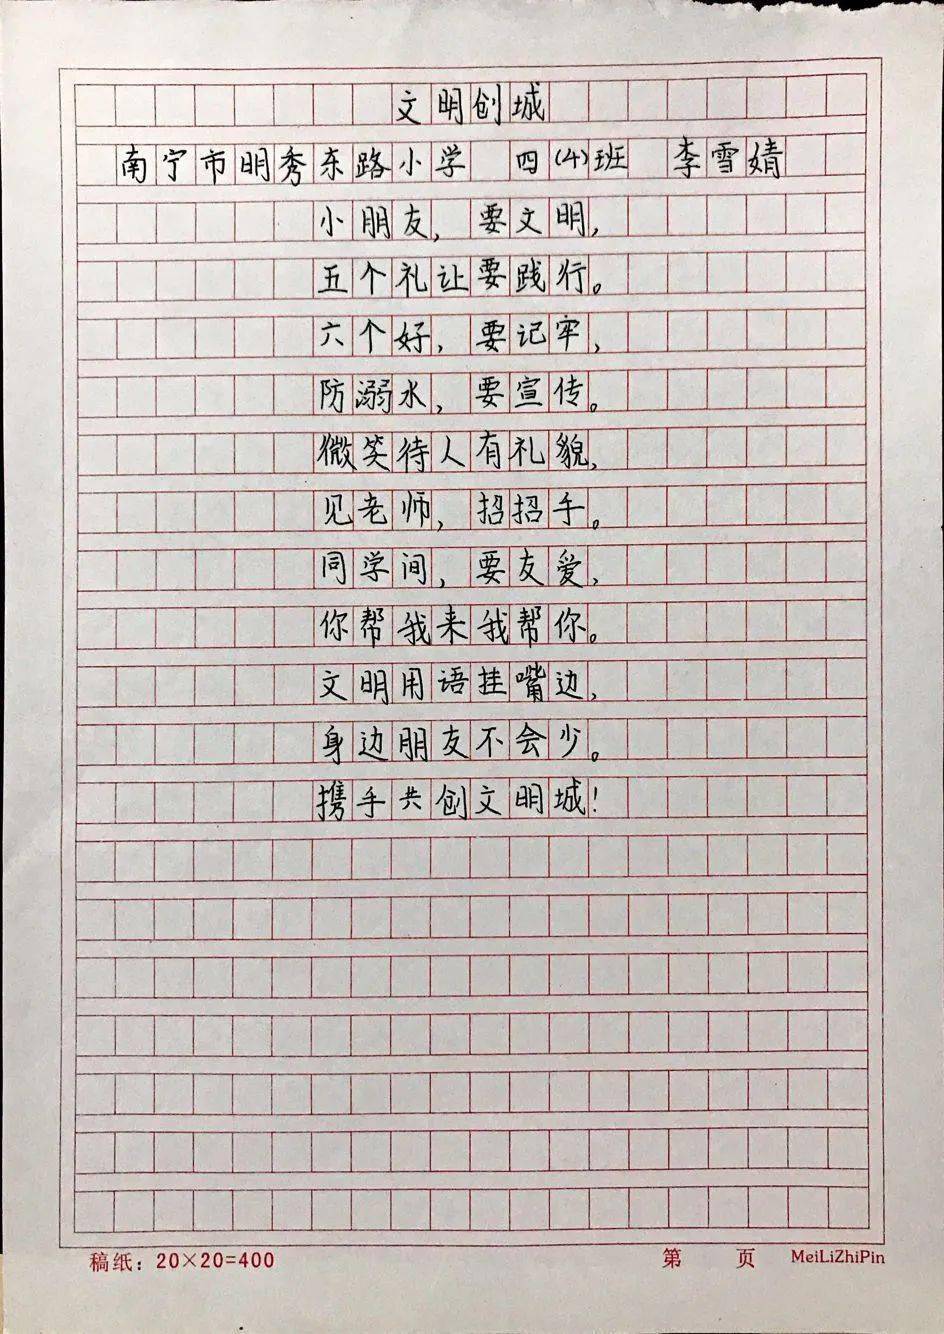 文明创城
南宁市明秀东路小学 四(4)班 李雪婧
小朋友，要文明，
五个礼让要践行。
六个好，要记牢，
防溺水，要宣传。
微笑待人有礼貌，
见老师，招招手。
同学间，要友爱，
你帮我来我帮你。
文明用语挂嘴边，
身边朋友不会少。
携手共创文明城！
稿纸：20×20=400 第 页 MeiLiZhiPin